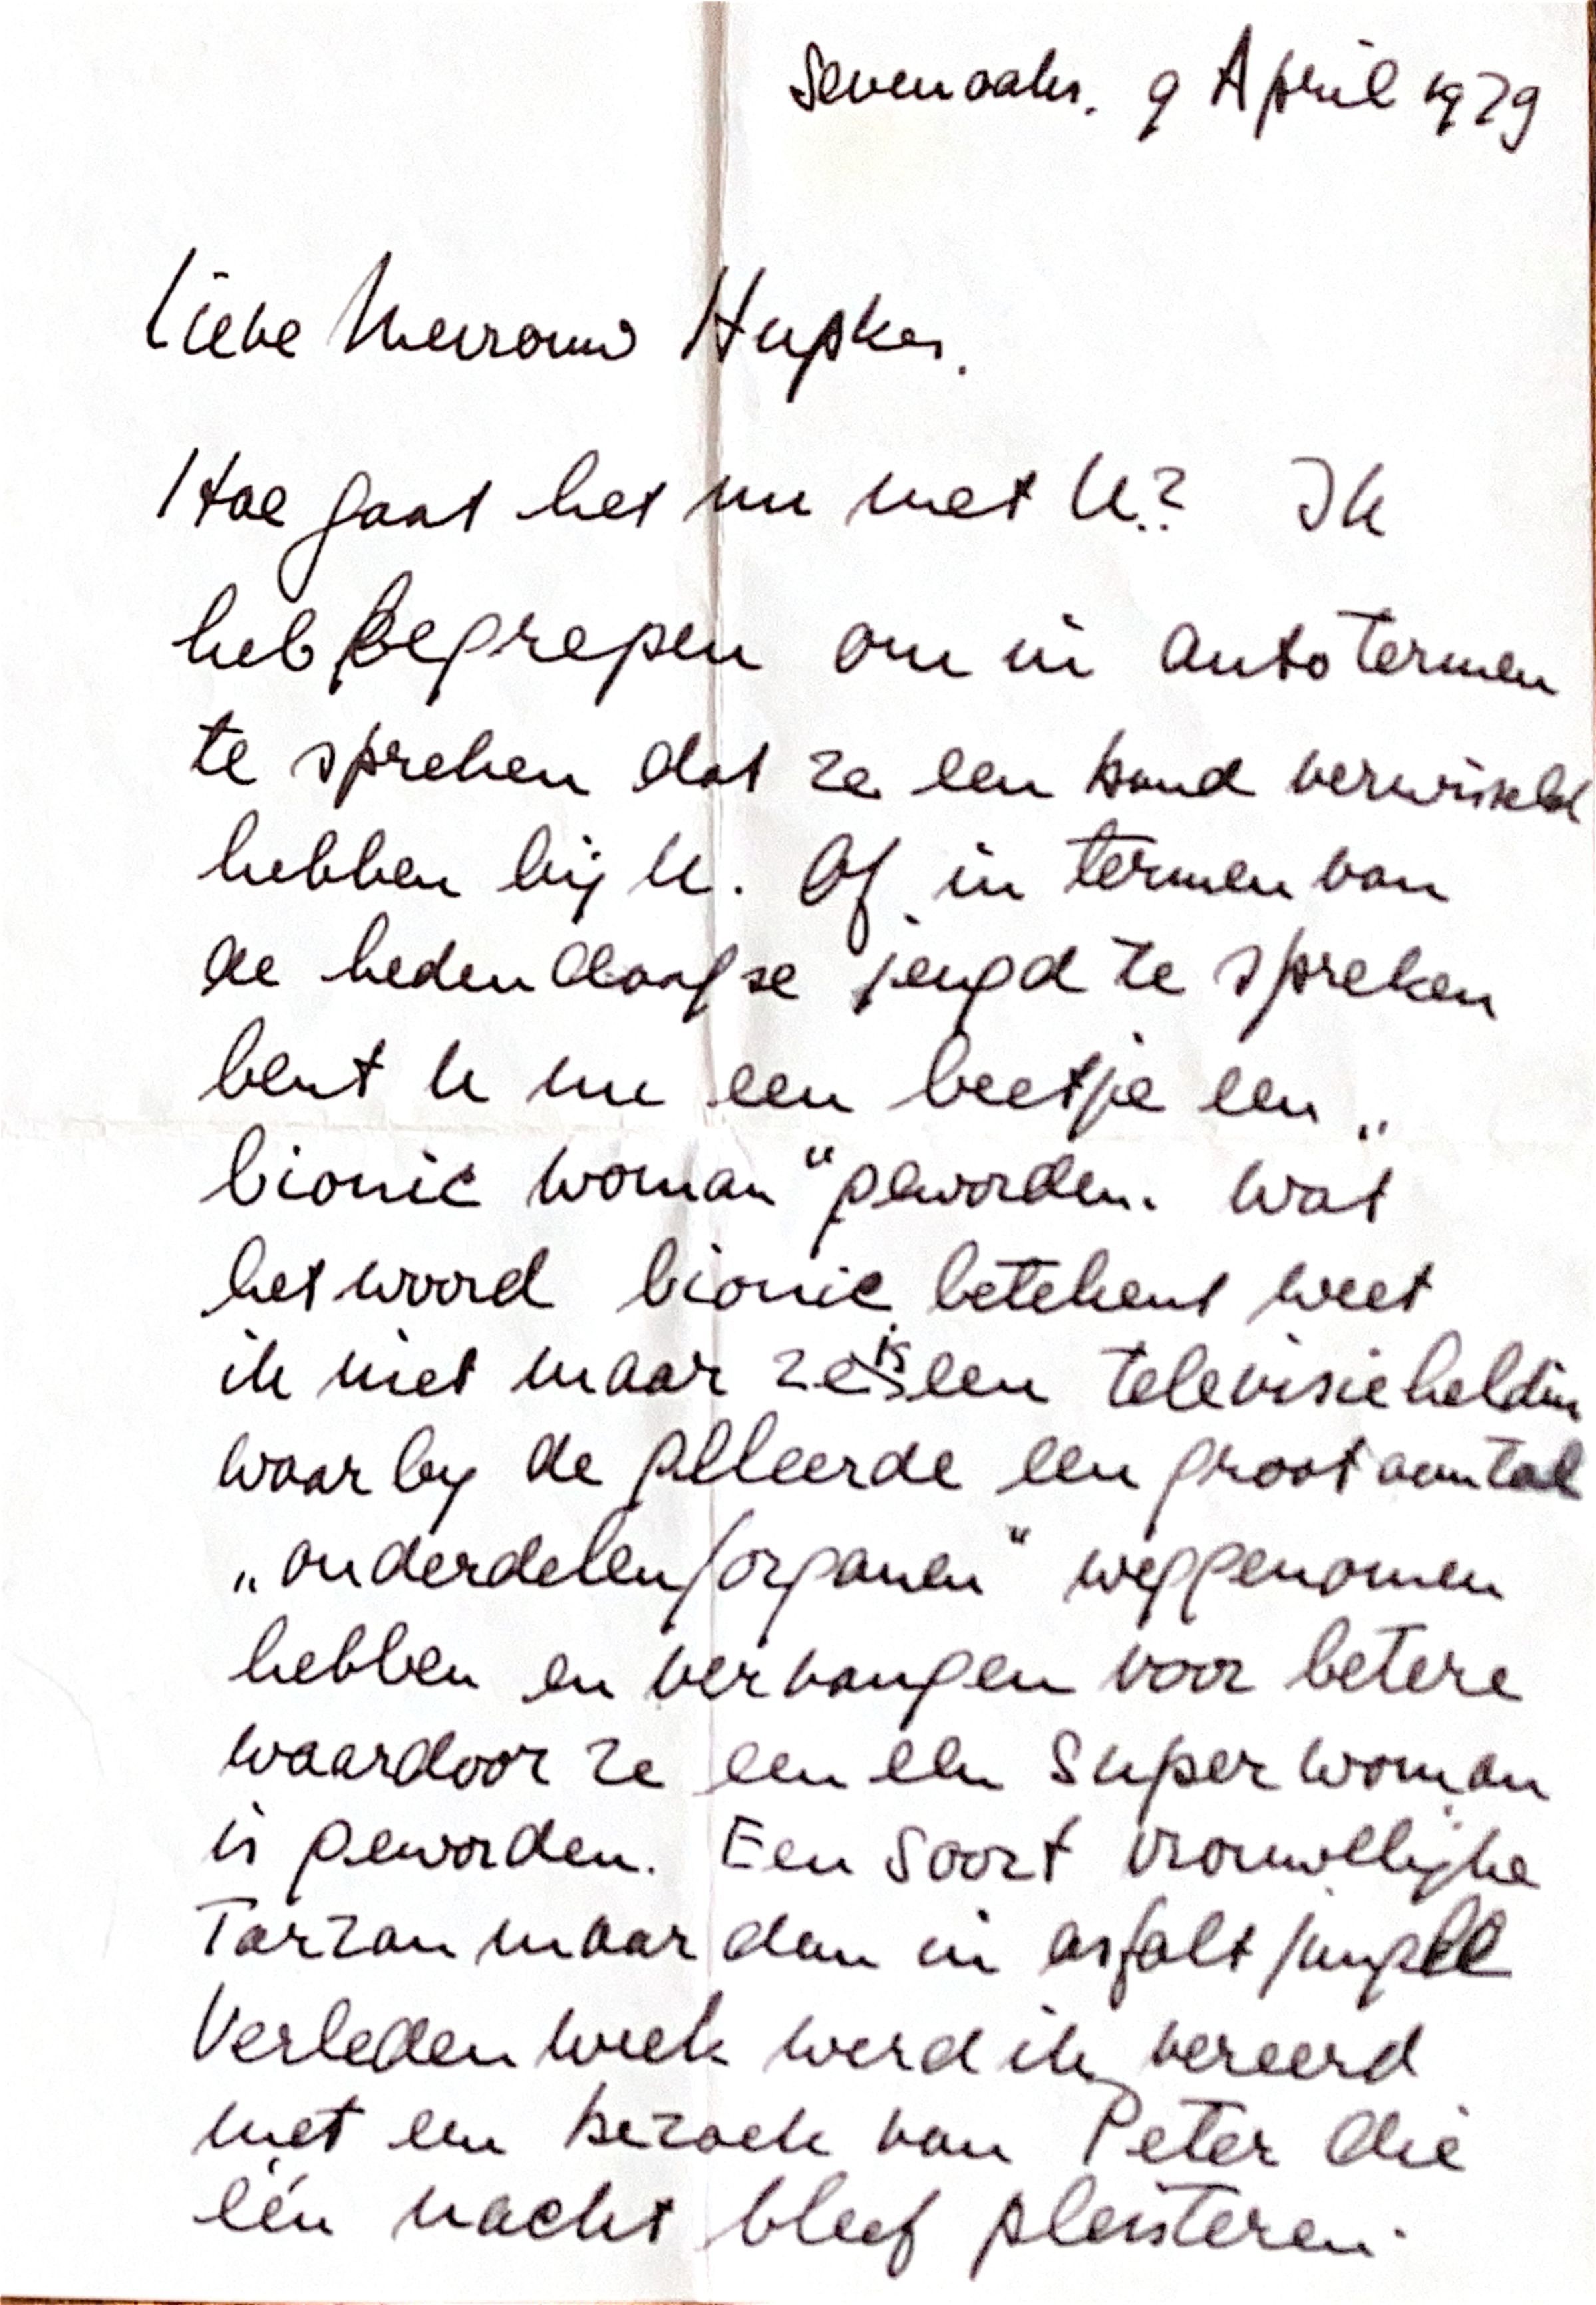 Sevenoaks. 9 April 1979
Lieve Mevrouw Hupkes.
Hoe gaat het nu met U? Ik
heb begrepen om in auto termen
te spreken dat ze een band verwisseld
hebben bij U. Of in termen van
de hedendaagse jeugd te spreken
bent U nu een beetje een „
bionic woman “ geworden. Wat
het woord bionic betekent weet
ik niet maar ze is een televisieheldin
waarby de geleerde een groot aantal
„ onderdelen/organen “ weggenomen
hebben en vervangen voor betere
waardoor ze een een Super woman
is geworden. Een soort vrouwelijke
Tarzan maar dan in asfalt jungle
Verleden week werd ik vereerd
met een bezoek van Peter die
één nacht bleef pleisteren.